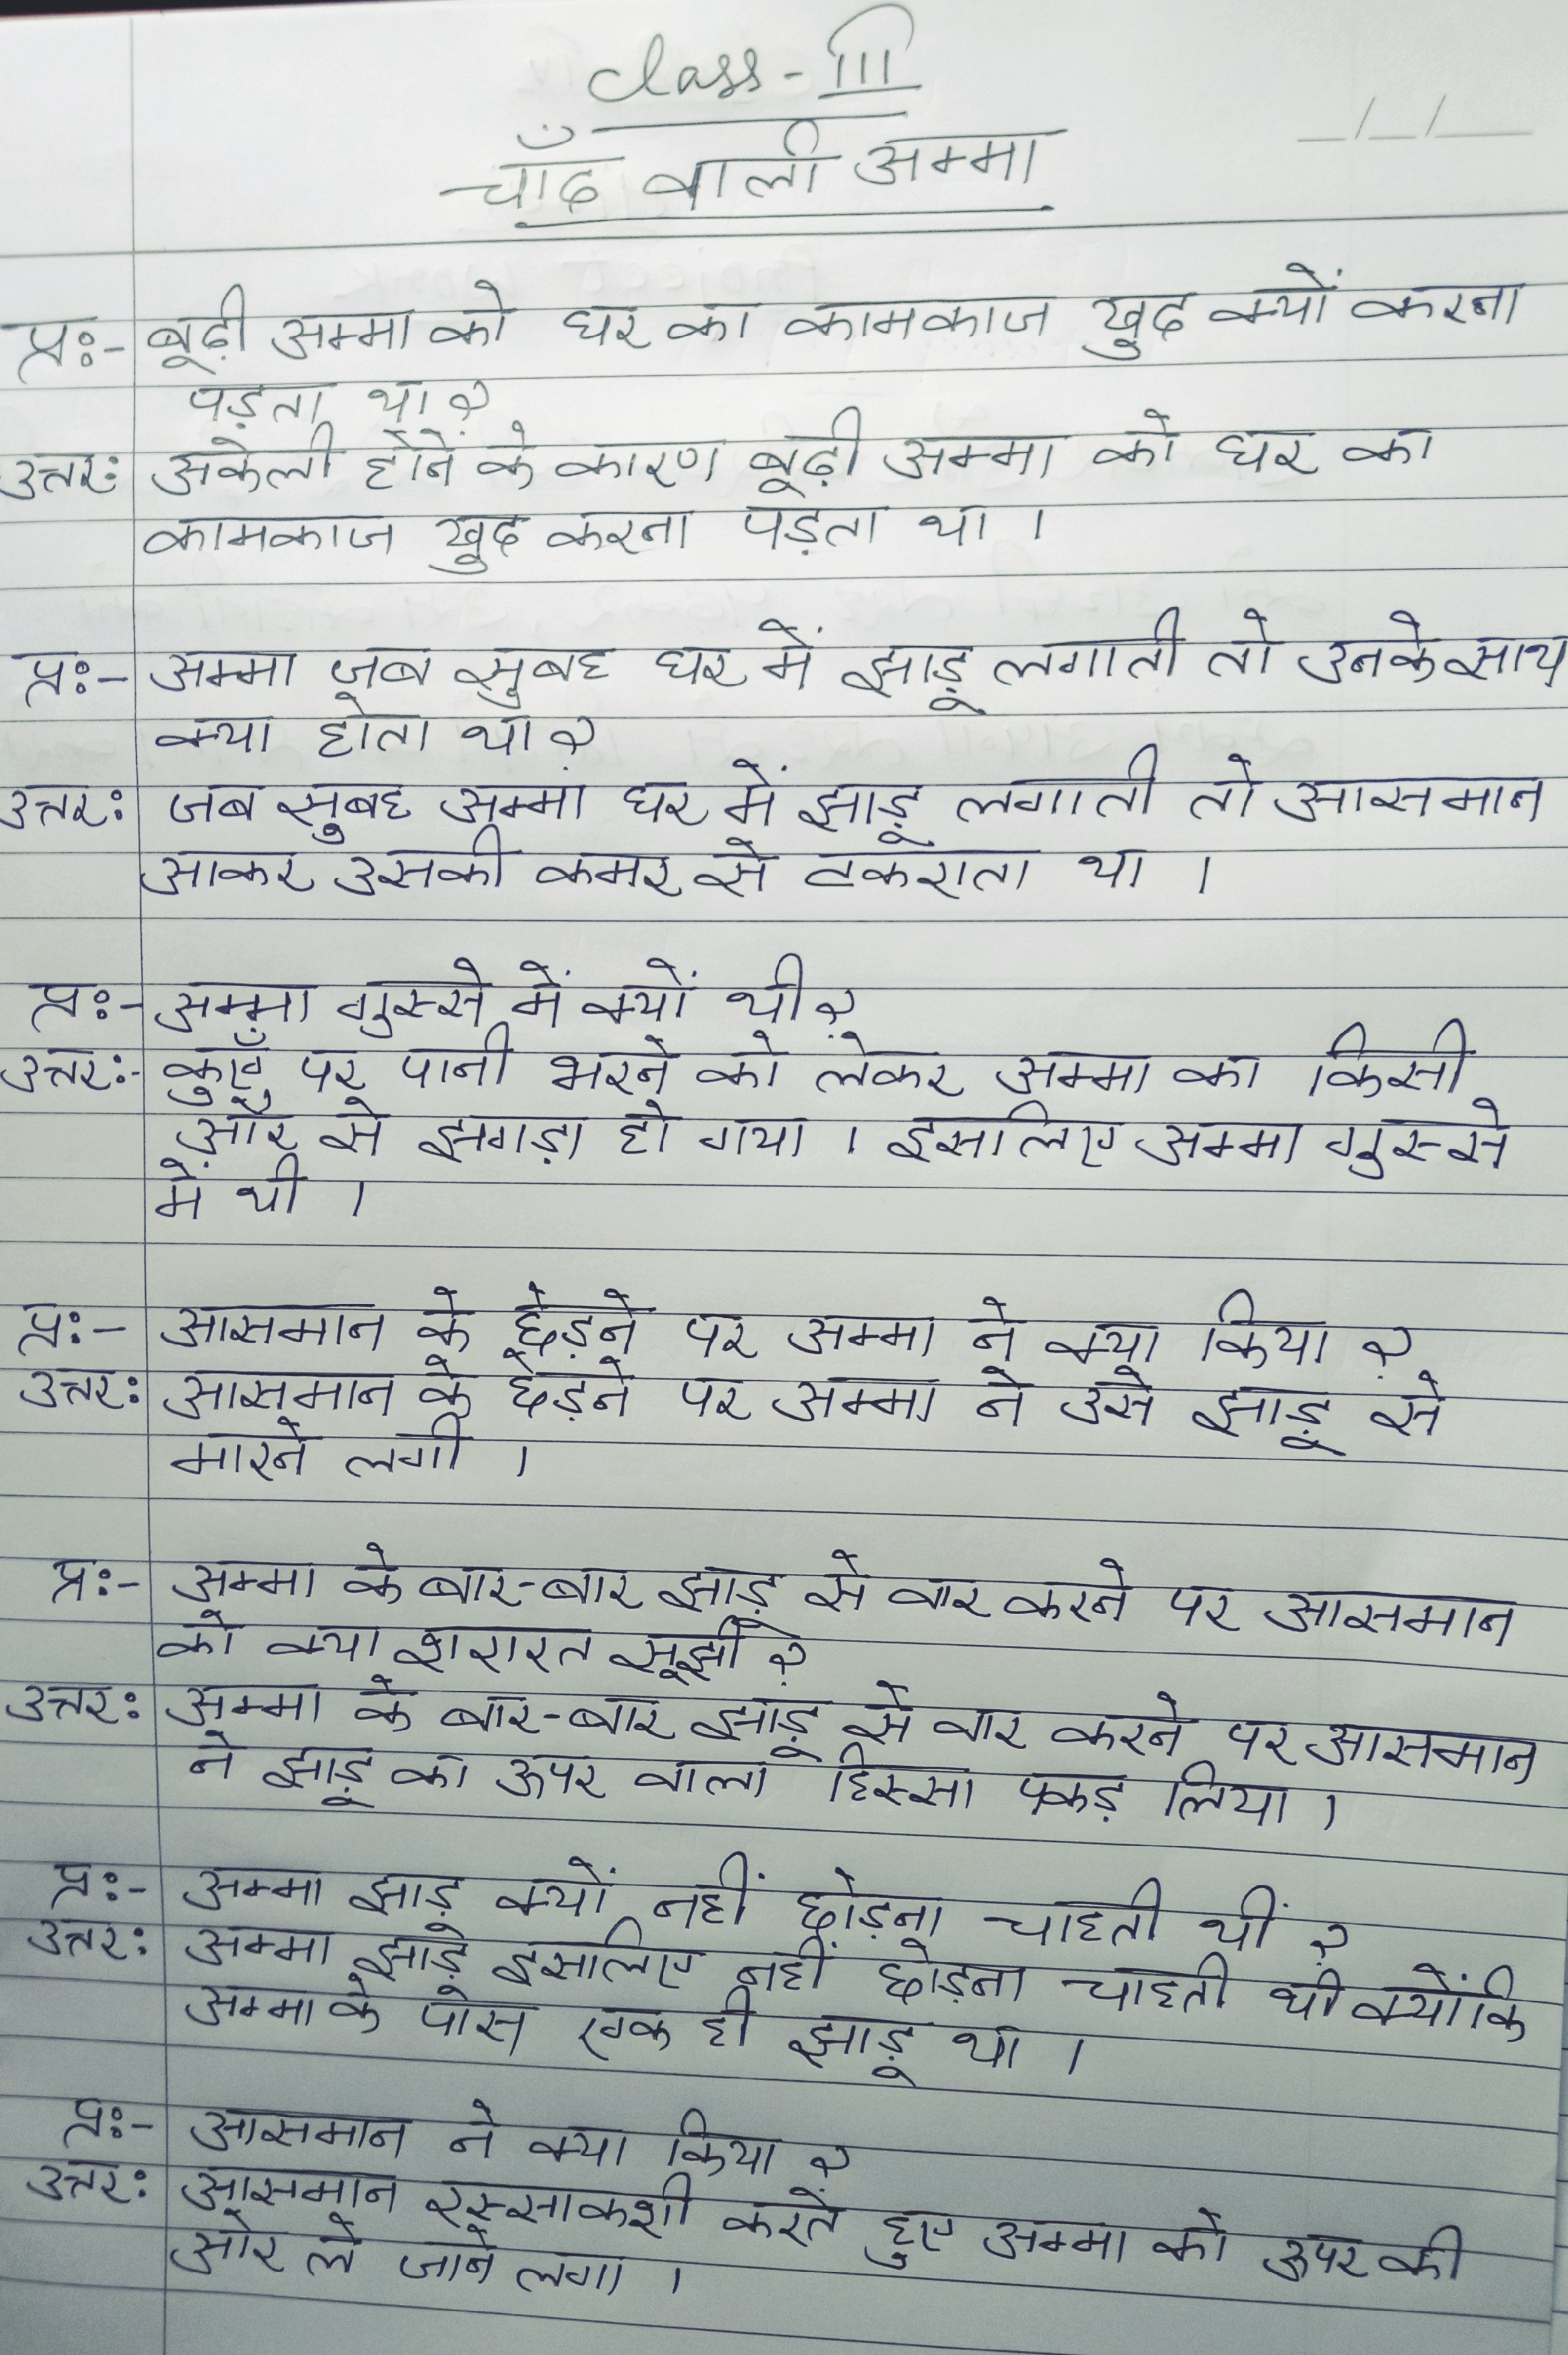 Class - III
चाँद वाली अम्मा
__/__/____
प्रः- बूढ़ी अम्मा को घर का कामकाज खुद क्यों करना
पड़ता था ?
उत्तरः अकेली होने के कारण बूढ़ी अम्मा को घर का
कामकाज खुद करना पड़ता था ।
प्रः- अम्मा जब सुबह घर में झाड़ू लगाती तो उनके साथ
क्या होता था ?
उत्तरः जब सुबह अम्मा घर में झाड़ू लगाती तो आसमान
आकर उसकी कमर से टकराता था ।
प्रः- अम्मा गुस्से में क्यों थी ?
उत्तरः- कुएँ पर पानी भरने को लेकर अम्मा का किसी
और से झगड़ा हो गया । इसलिए अम्मा गुस्से
में थी ।
प्रः- आसमान के छेड़ने पर अम्मा ने क्या किया ?
उत्तरः आसमान के छेड़ने पर अम्मा ने उसे झाड़ू से
मारने लगी ।
प्रः- अम्मा के बार-बार झाड़ू से वार करने पर आसमान
को क्या शरारत सूझी ?
उत्तरः अम्मा के बार-बार झाड़ू से वार करने पर आसमान
ने झाड़ू का ऊपर वाला हिस्सा पकड़ लिया ।
प्रः- अम्मा झाड़ू क्यों नहीं छोड़ना चाहती थीं ?
उत्तरः अम्मा झाड़ू इसलिए नहीं छोड़ना चाहती थी क्योंकि
अम्मा के पास एक ही झाड़ू था ।
प्रः- आसमान ने क्या किया ?
उत्तरः आसमान रस्साकशी करते हुए अम्मा को ऊपर की
ओर ले जाने लगा ।